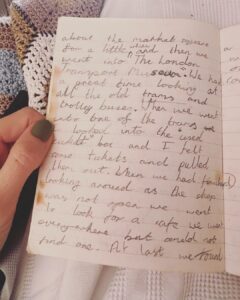 about the market square
for a little when and then we
went into The London
Transport Museum. We had
a great time looking at
all the old trams and
trolley buses. Then we went
into one of the trams we
looked into the "used
ticket" box and I felt
some tickets and pulled
them out. When we had finished
looking around as the shop
was not open we went
to look for a cafe we went
everywhere but could not
find one. At last we found